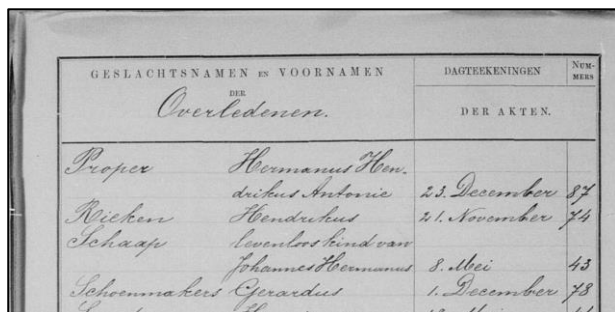 GESLACHTSNAMEN EN VOORNAMEN
DER
Overledenen.
DAGTEEKENINGEN
DER AKTEN.
NUM-
MERS
Proper Hermanus Hen-
drikus Antonie 23. December 87
Rieken Hendrikus 21. November 74
Schaap levenloos kind van
Johannes Hermanus 8. Mei 43
Schoenmakers Gerardus 1. December 78